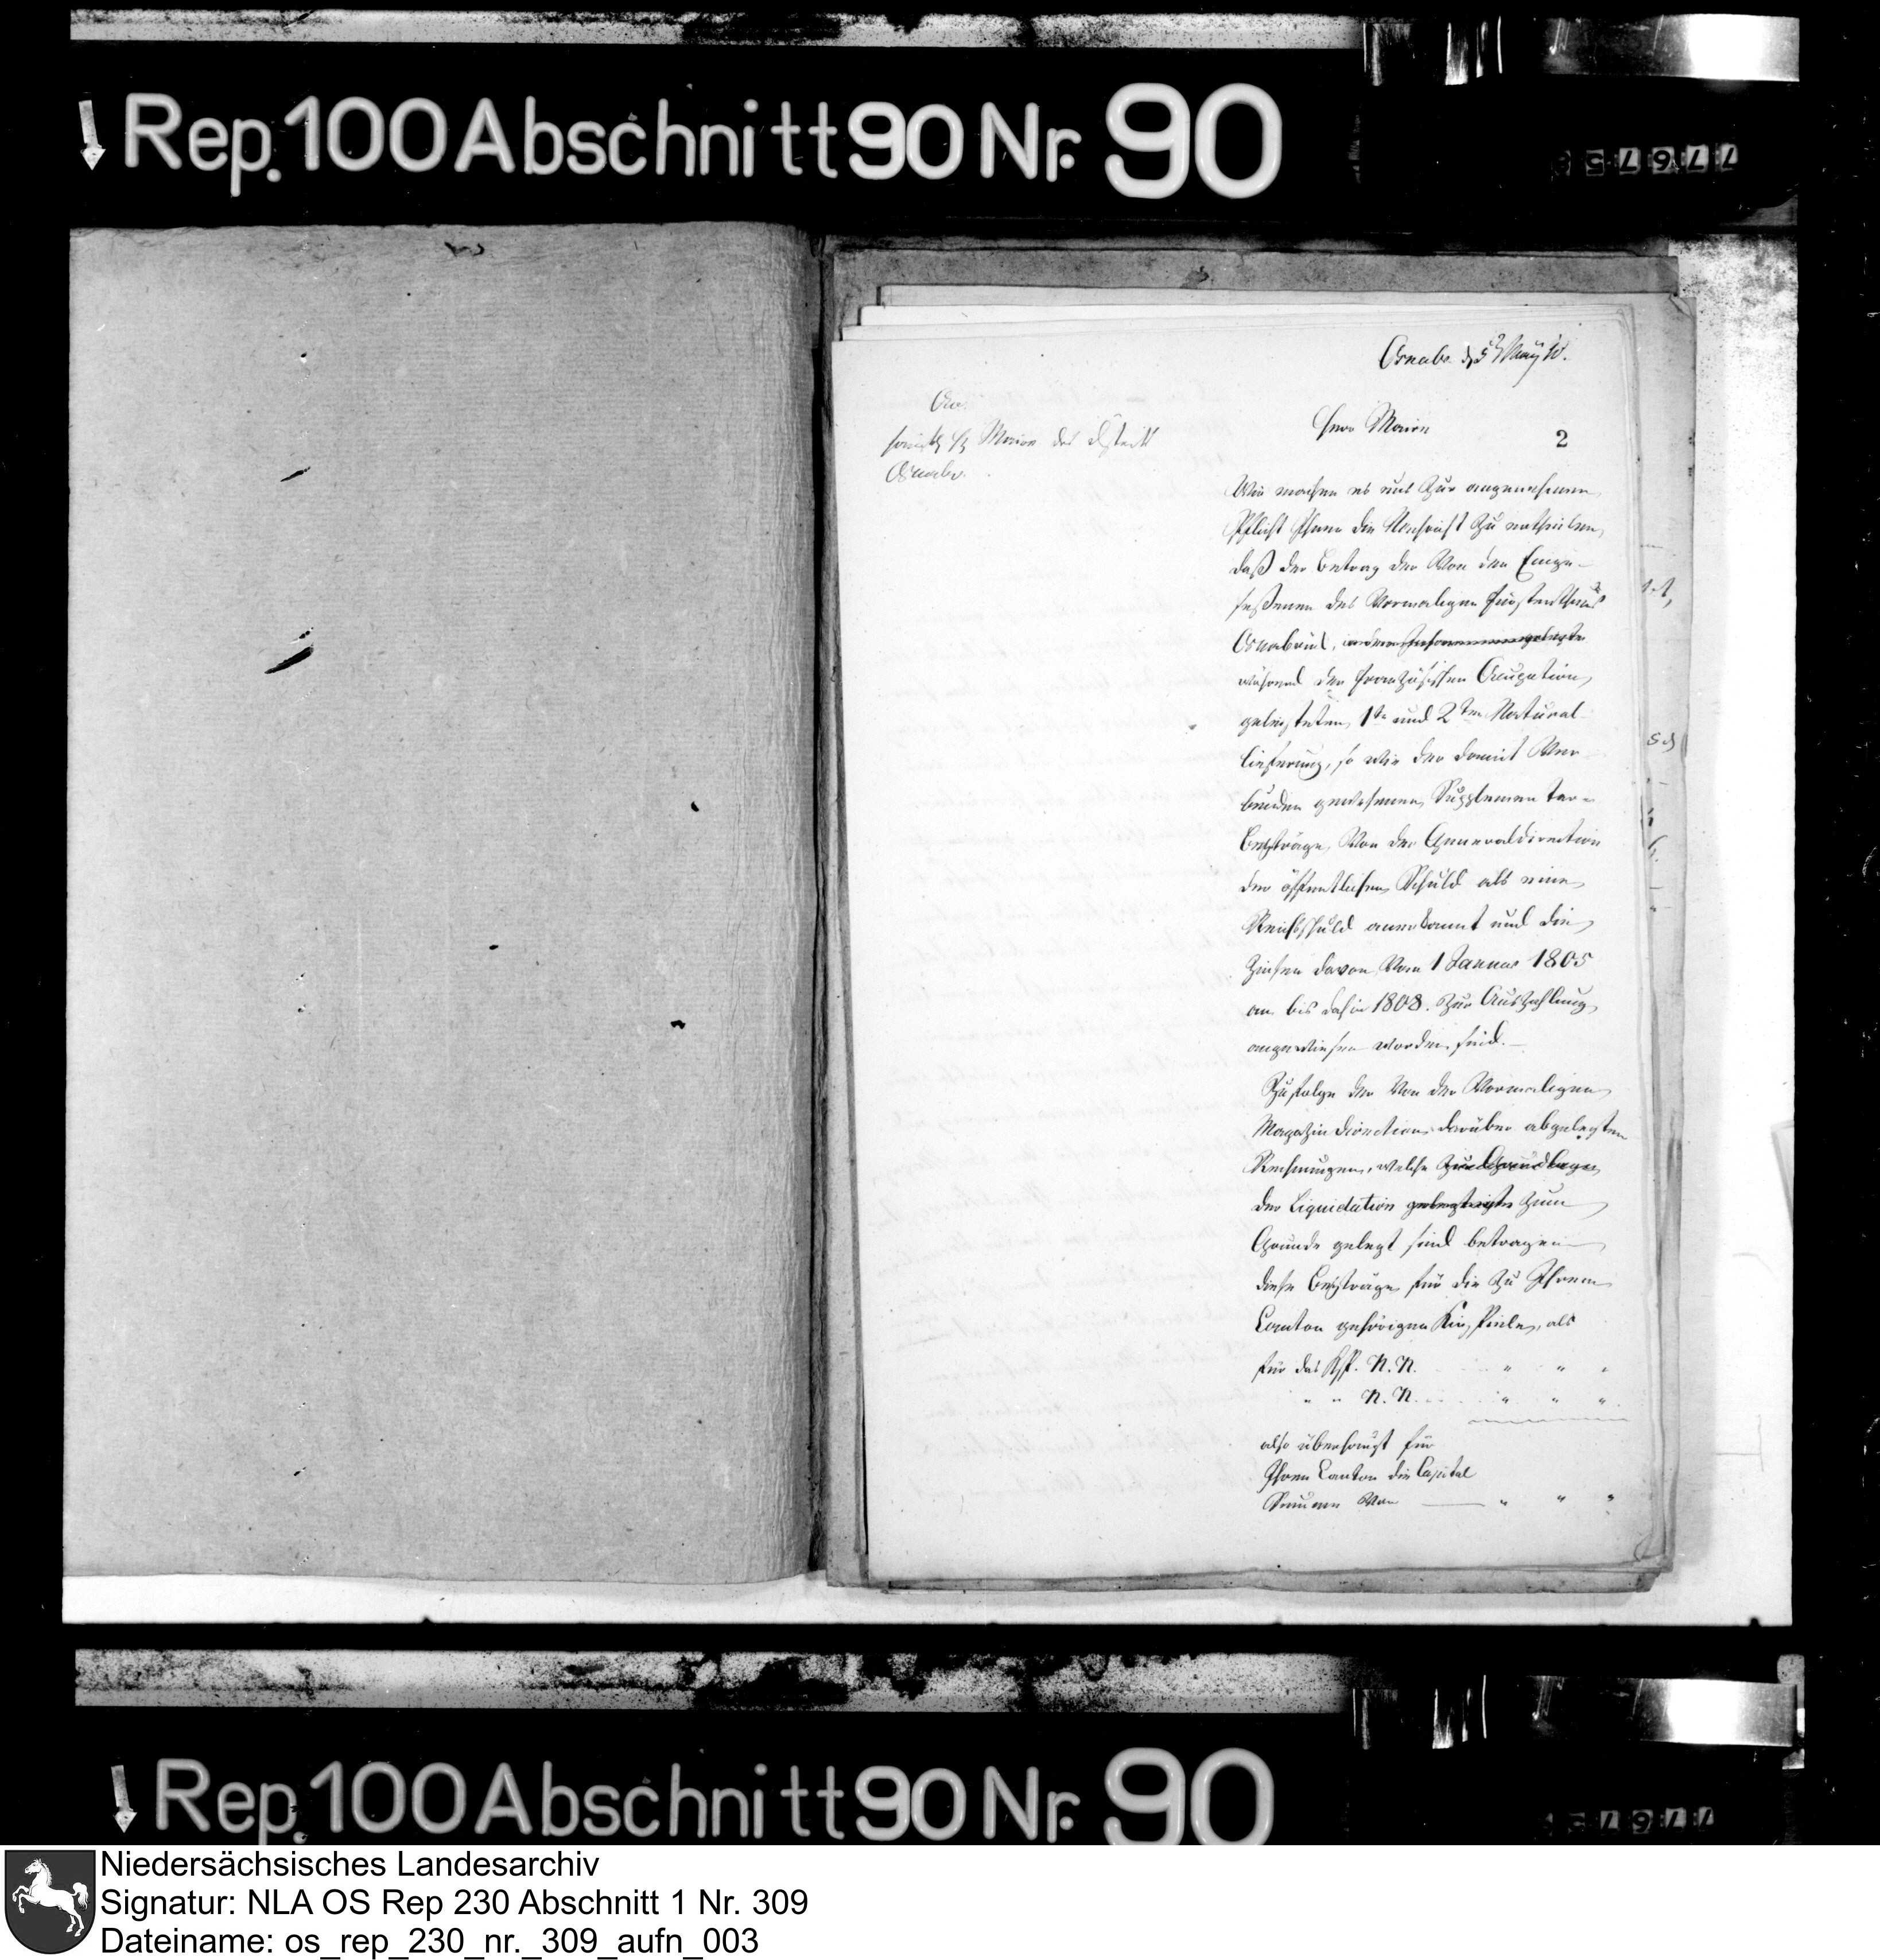 Rep. 100 Abschnitt 90 Nr. 90
Osnabr. d 5 May 10.
An
sämtl. H. Maire des District
Osnabr.
Herr Maire
2
Wir machen es uns zur angenehmen
Pflicht Ihnen die Nachricht zu ertheilen,
daß der Betrag der von den Einge-
seßenen des vormaligen Fürstenthums
Osnabrück,
während der französischen Occupation
geleisteten 1te und 2ten Natural-
lieferung, so wie der damit ver-
bunden gewesenen Supplementar-
Beyträge, von der Generaldirection
der öffentlichen Schuld als eine
Reichsschuld anerkannt und die
Zinsen davon vom 1 Januar 1805
an bis dahin 1808. zur Auszahlung
angewiesen worden sind.
Zufolge der von der vormaligen
Magazin Direction darüber abgelegten
Rechnungen, welche zur Grundlage
der Liquidation zum
Grunde gelegt sind betragen
diese Beyträge für die zu Ihrem
Canton gehörigen Kirchspiele, als
für das Ksp. N. N. " " "
" " N. N. " " "
also überhaupt für
Ihren Canton die Capital
Summe von — " " "
Rep. 100 Abschnitt 90 Nr. 90
Niedersächsisches Landesarchiv
Signatur: NLA OS Rep 230 Abschnitt 1 Nr. 309
Dateiname: os_rep_230_nr._309_aufn_003